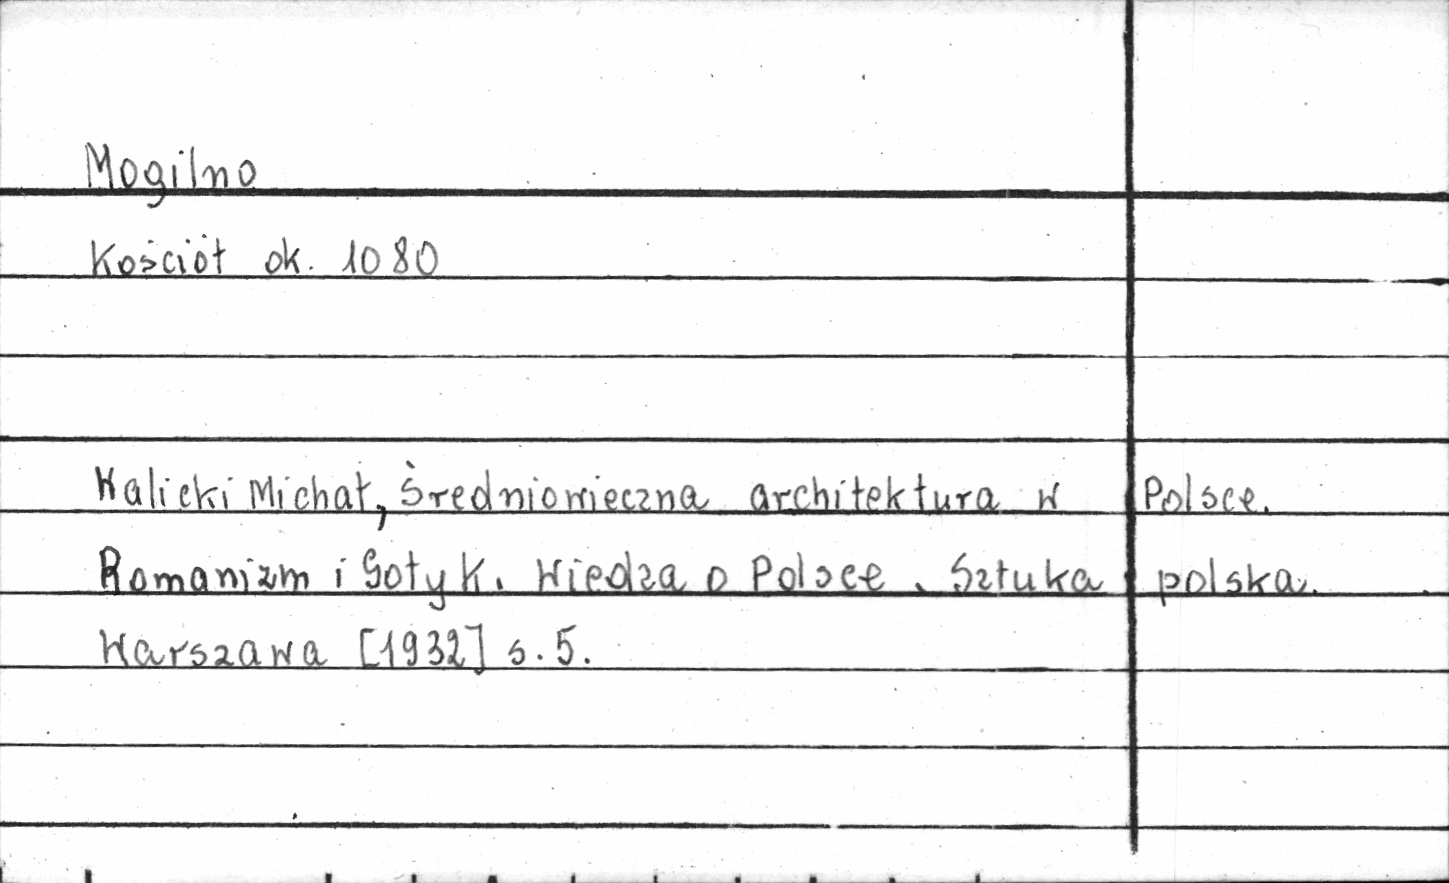 Mogilno
Kościół ok. 1080
Walicki Michał, Średniowieczna architektura w Polsce.
Romanizm i Gotyk. Wiedza o Polsce. Sztuka polska.
Warszawa [1932] s. 5.